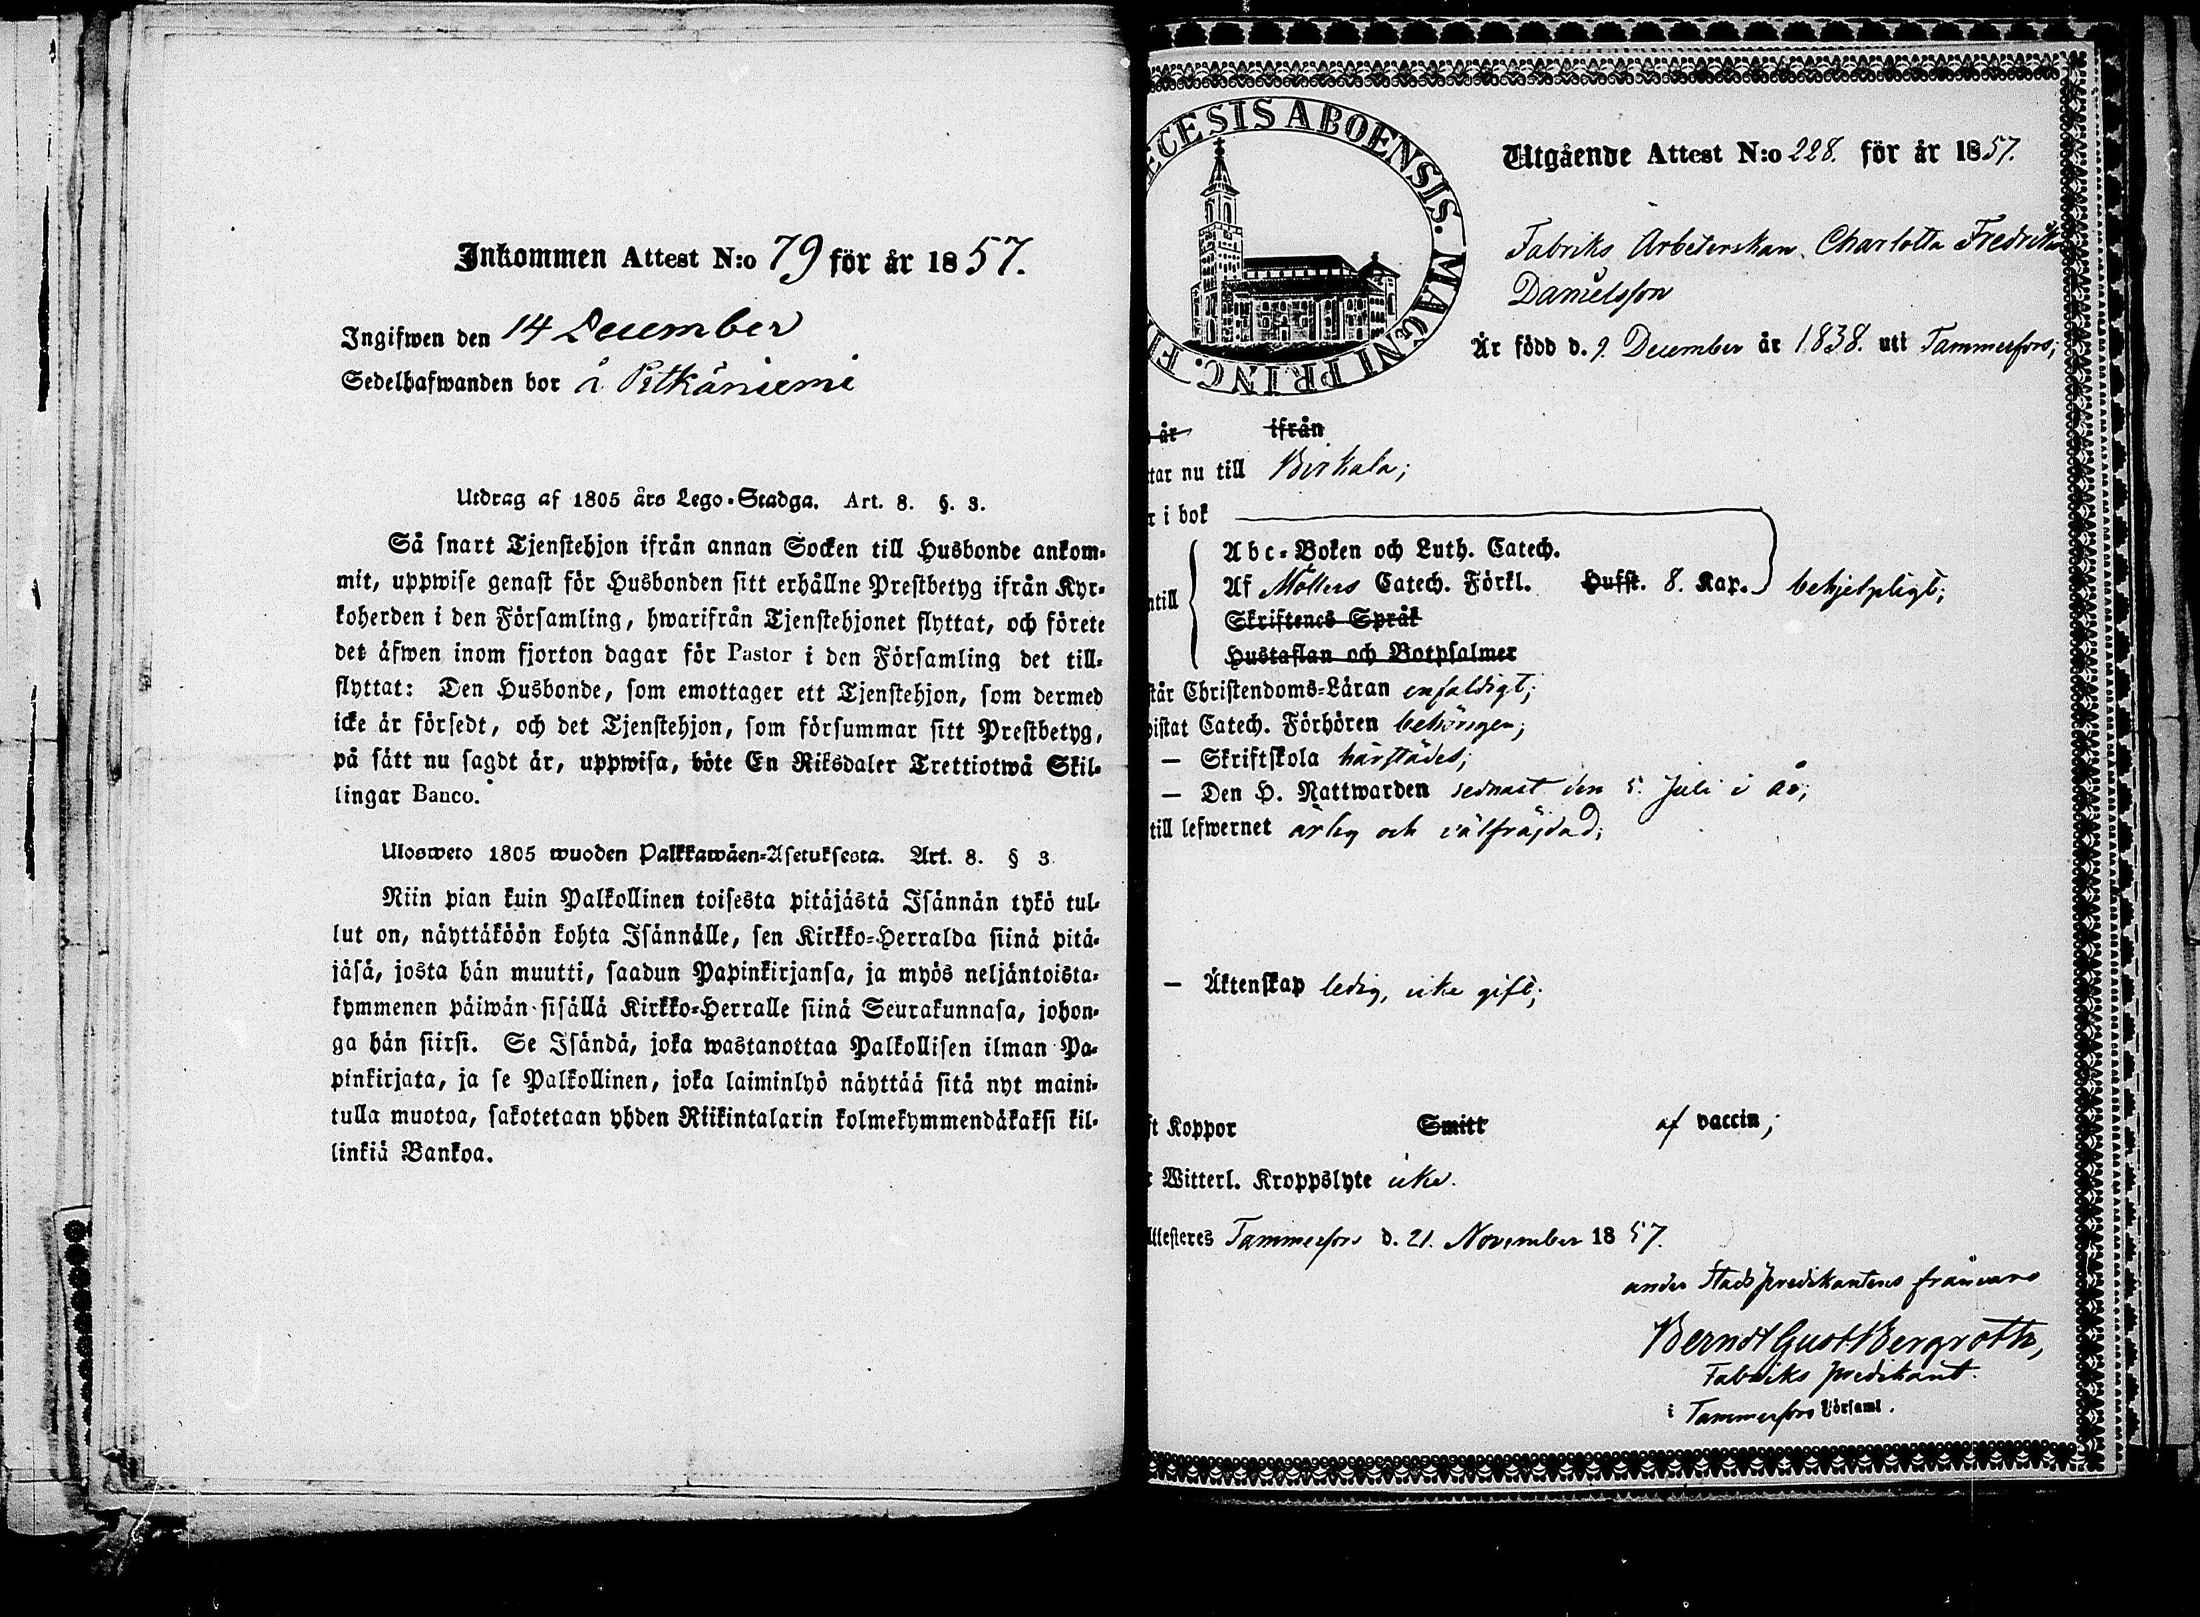 Inkommen Attest N:o 79 för år 1857.
Ingifwen den 14 December
Sedelhafwanden bor å Pitkäniemi
Utdrag af 1805 års Lego-Stadga. Art. 8. §. 3.
Så snart Tjenstehjon ifrån annan Socken till Husbonde ankom-
mit, uppwise genast för Husbonden sitt erhållne Prestbetyg ifrån Kyr-
koherden i den Församling, hwarifrån Tjenstehjonet flyttat, och förete
det äfwen inom fjorton dagar för Pastor i den Församling det till-
flyttat: Den Husbonde, som emottager ett Tjenstehjon, som dermed
icke är försedt, och det Tjenstehjon, som försummar sitt Prestbetyg,
på sätt nu sagdt är, uppwisa, böte En Riksdaler Trettiotwå Skil-
lingar Banco.
Ulosweto 1805 wuoden Palkkawäen-Asetuksesta. Art. 8. § 3
Niin pian kuin Palkollinen toisesta pitäjästä Isännän tykö tul-
lut on, näyttäköön kohta Isännälle, sen Kirkko-Herralda siinä pitä-
jäsä, josta hän muutti, saadun Papinkirjansa, ja myös neljäntoista-
kymmenen päiwän sisällä Kirkko-Herralle siinä Seurakunnasa, johon-
ga hän siirsi. Se Isändä, joka wastanottaa Palkollisen ilman Pa-
pinkirjata, ja se Palkollinen, joka laiminlyö näyttää sitä nyt maini-
tulla muotoa, sakotetaan yhden Riikintalarin kolmekymmendäkaksi kil-
linkiä Bankoa.
ECESIS ABOENSIS. MAGNI PRINC. FI
Utgående Attest N:o 228. för år 1857.
Fabriks Arbeterskan Charlotta Fredrika
Danielsson
Är född d. 9. December år 1838. uti Tammerfors;
år ifrån
tar nu till Birkala;
r i bok
Abc-Boken och Luth. Catech.
ntill Af Möllers Catech. Förkl. Hufst. 8. Kap. behjelpligt;
Skriftenes Språk
Hustaflan och Botpsalmer
står Christendoms-Läran enfaldigt;
bistat Catech. Förhören behörigen;
— Skriftskola härstädes;
— Den H. Nattwarden sednast den 5. Juli i år;
till lefwernet ärlig och välfräjdad;
— Äktenskap ledig, icke gift;
ft Koppor Smitt af vaccin;
r Witterl. Kroppslyte icke.
Attesteres Tammerfors d. 21. November 1857.
under Stadspredikantens frånvaro
Berndt Gust Bergroth,
Fabriks predikant.
i Tammerfors Församl.